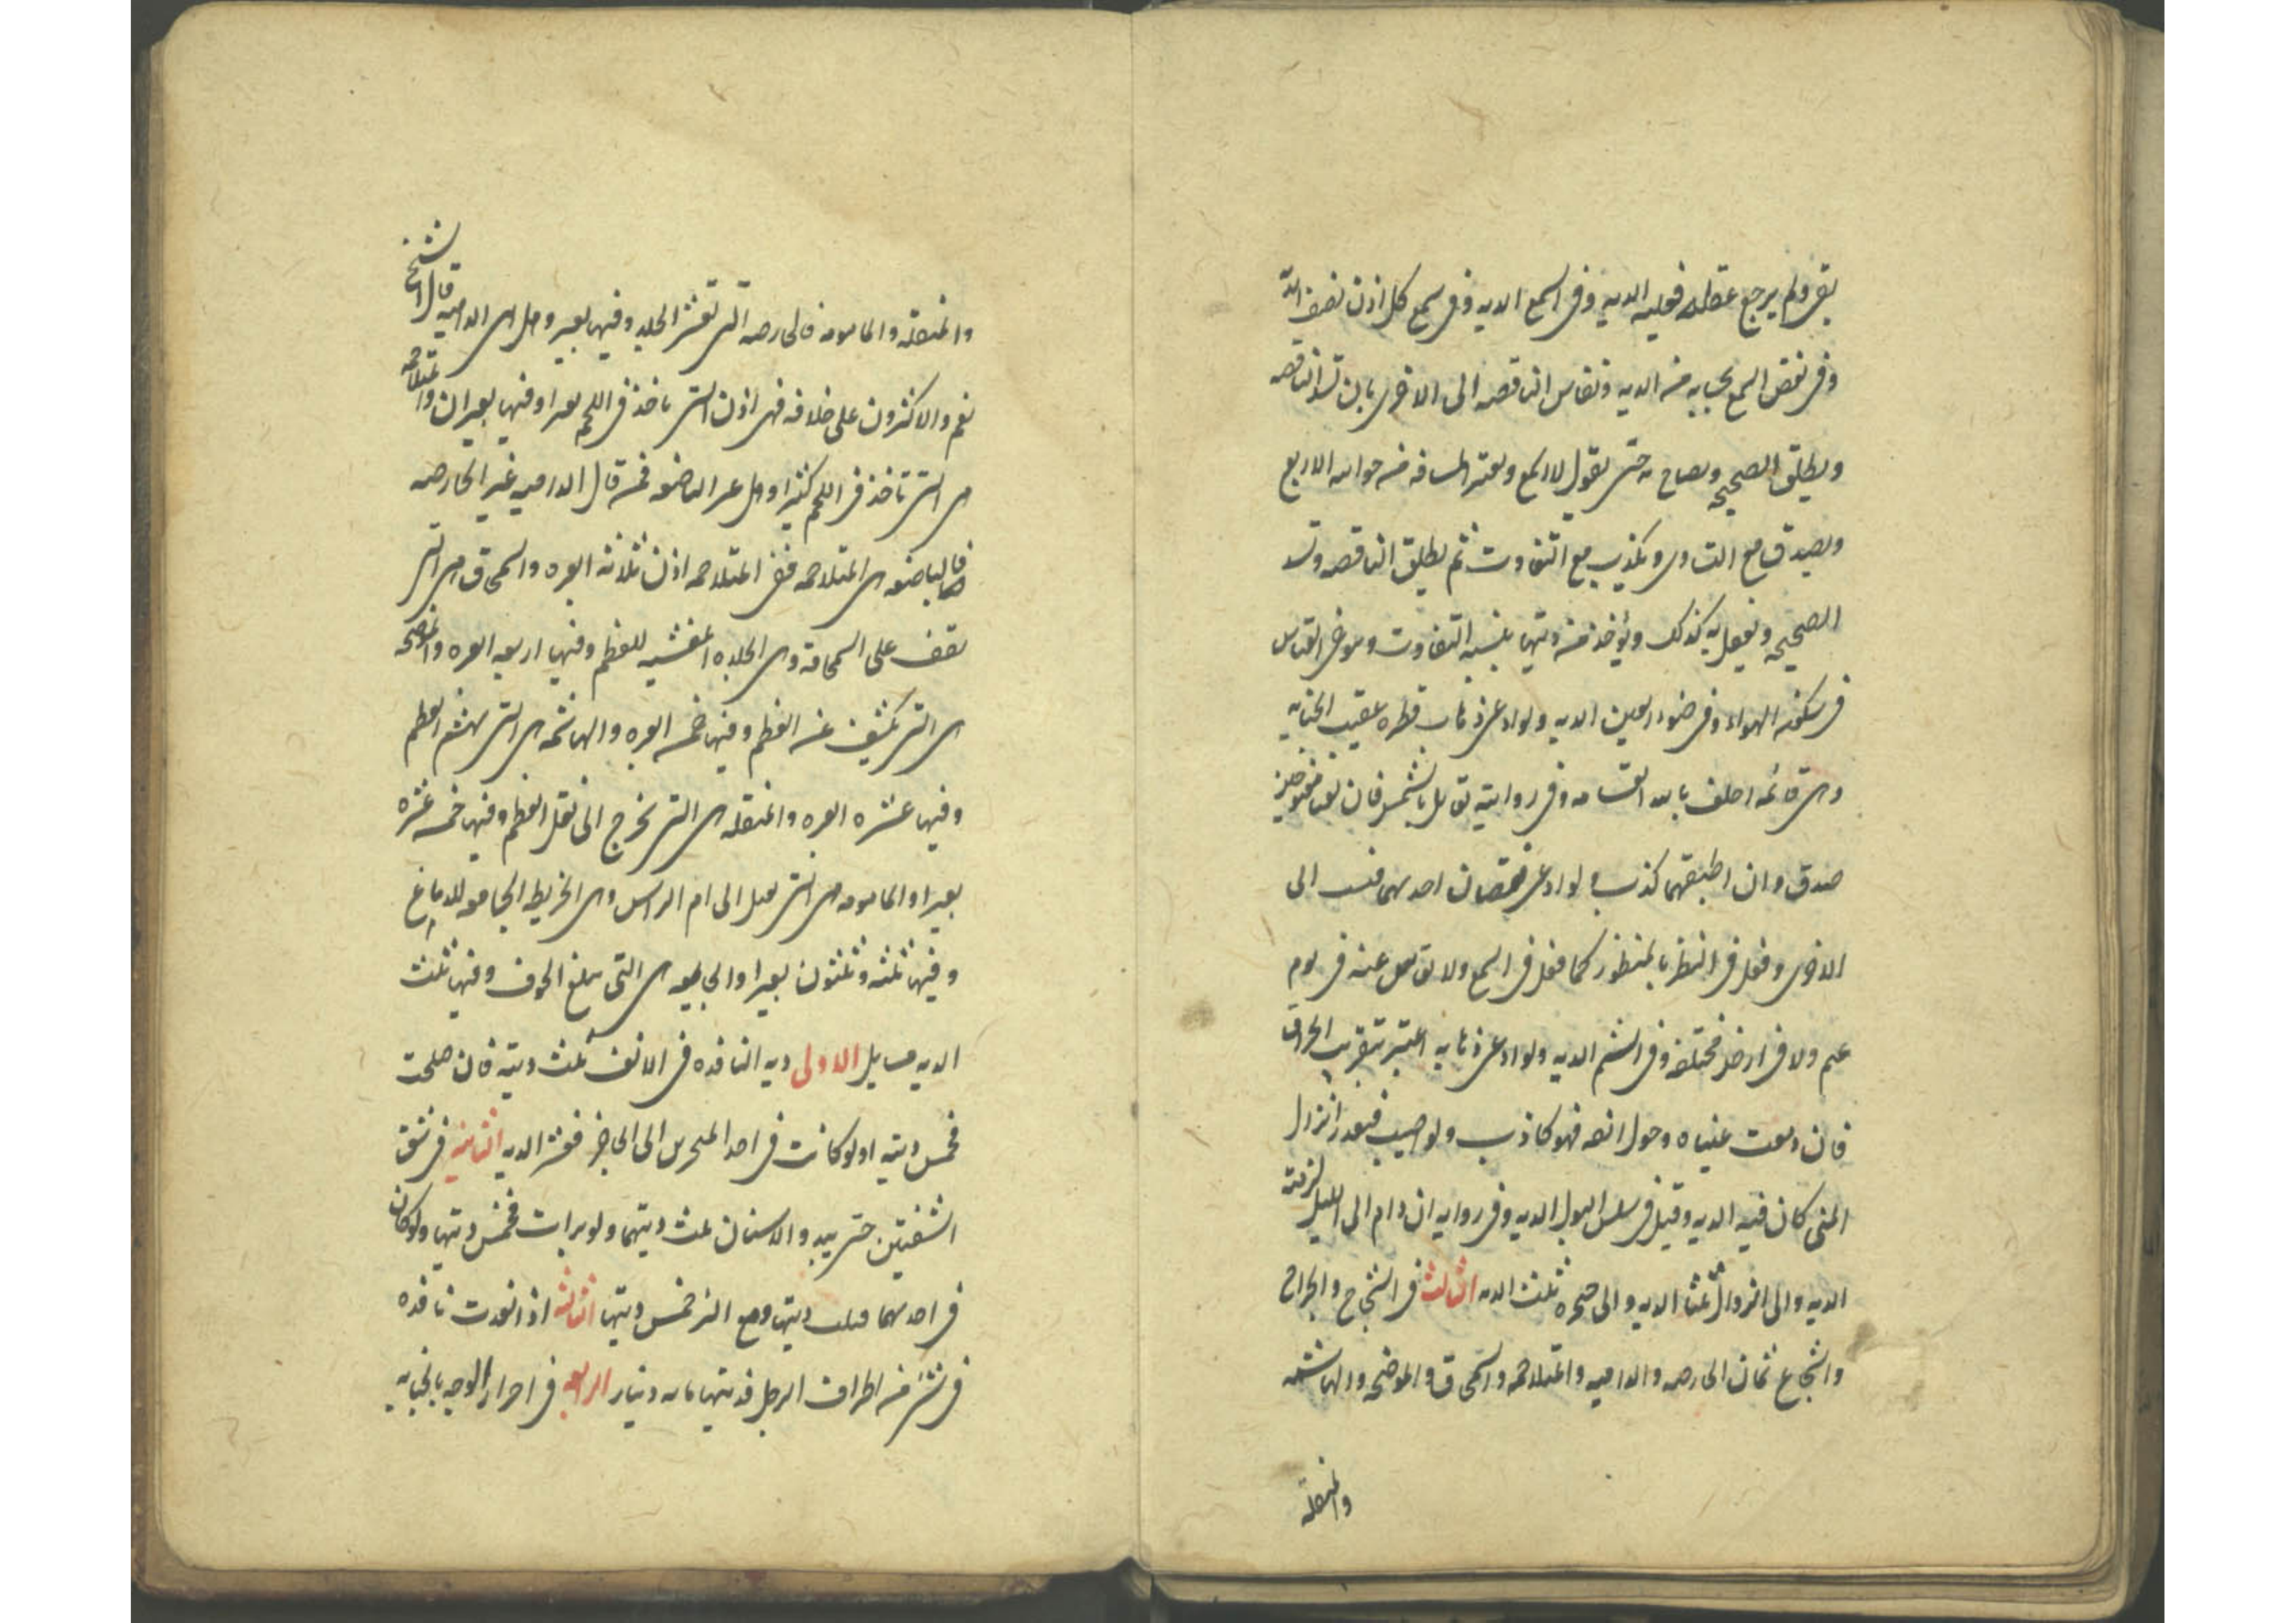 يقر ولم يرجع عقله فعليه الدية وفى السمع الدية وفى سمع كل اذن نصف الدية
وفى نقص السمع بحسابه من الدية وتقاس الناقصة الى الاخرى بان تسد الناقصة
ويطلق الصحيحه ويصاح به حتى يقول لا اسمع ويعتبر المسافه من جوانبه الاربع
ويصدق مع التساوى ويكذب مع التفاوت ثم يطلق الناقصه وتسد
الصحيحه ويفعل به كذلك ويؤخذ من ديتها بنسبة التفاوت ويتوخى القياس
فى سكون الهواء وفى ضوء العين الديه ولو ادعى ذهاب نظره عقيب الجنايه
وهى قائمه احلف بالله القسامه وفى رواية تقابل بالشمس فان بقيتا مفتوحتين
صدق وان اطبقهما كذب ولو ادعى نقصان احديهما قيست الى
الاخرى وفعل فى النظر بالمنظور كما فعل فى السمع ولا يقاس عينه فى يوم
غيم ولا فى ارض مختلفه وفى الشم الديه ولو ادعى ذهابه اعتبر بتقريب الحراق
فان دمعت عيناه وحول انفه فهو كاذب ولو اصيب فتعذر انزال
المنى كان فيه الديه وقيل فى سلس البول الديه وفى روايه ان دام الى الليل لزمته
الديه والى الزوال ثلثا الديه والى ضحوه ثلث الديه الثالث فى الشجاج والجراح
والشجاج ثمان الحارصه والداميه والمتلاحمه والسمحاق والموضحه والهاشمه
والمنقله
والمنقله والمامومه فالحارصه التى تقشر الجلد وفيها بعير وهل هى الداميه قال الشيخ
نعم والاكثرون على خلافه فهى اذن التى تاخذ فى اللحم يسيرا وفيها بعيران والمتلاحمه
هى التى تاخذ فى اللحم كثيرا وهل هى الباضعه فمن قال الداميه غير الحارصه
فالباضعه هى المتلاحمه ففى المتلاحمه اذن ثلاثة ابعره والسمحاق هى التى
تقف على السمحاقه وهى الجلده المغشيه للعظم وفيها اربعه ابعره والموضحه
هى التى تكشف عن العظم وفيها خمسه ابعره والهاشمه هى التى تهشم العظم
وفيها عشره ابعره والمنقله هى التى تخرج الى نقل العظم وفيها خمسه عشره
بعيرا والمامومه هى التى تصل الى ام الراس وهى الخريطه الجامعه للدماغ
وفيها ثلثه وثلثون بعيرا والجايفه هى التى تبلغ الجوف وفيها ثلث
الديه مسايل الاولى ديه النافذه فى الانف ثلث ديته فان صلحت
فخمس ديته ولو كانت فى احد المنخرين الى الحاجز فعشر الديه الثانيه فى شق
الشفتين حتى يبدو الاسنان ثلث ديتهما ولو برات فخمس ديتها ولو كان
فى احديهما فثلث ديتها ومع البرء خمس ديتها الثالثه اذا نفذت نافذه
فى شىء من اطراف الرجل فديتها مايه دينار الرابعه فى احمرار الوجه بالجنايه